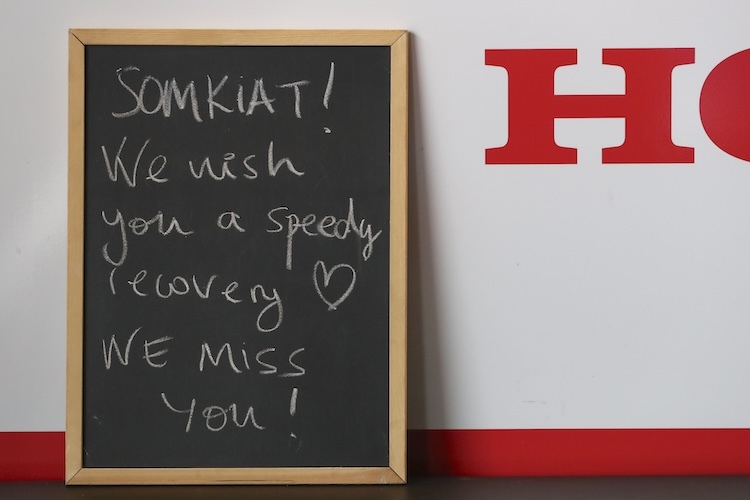 SOMKiAT!
We wish
you a speedy
recovery ♡
WE MiSS
YOU!
HO